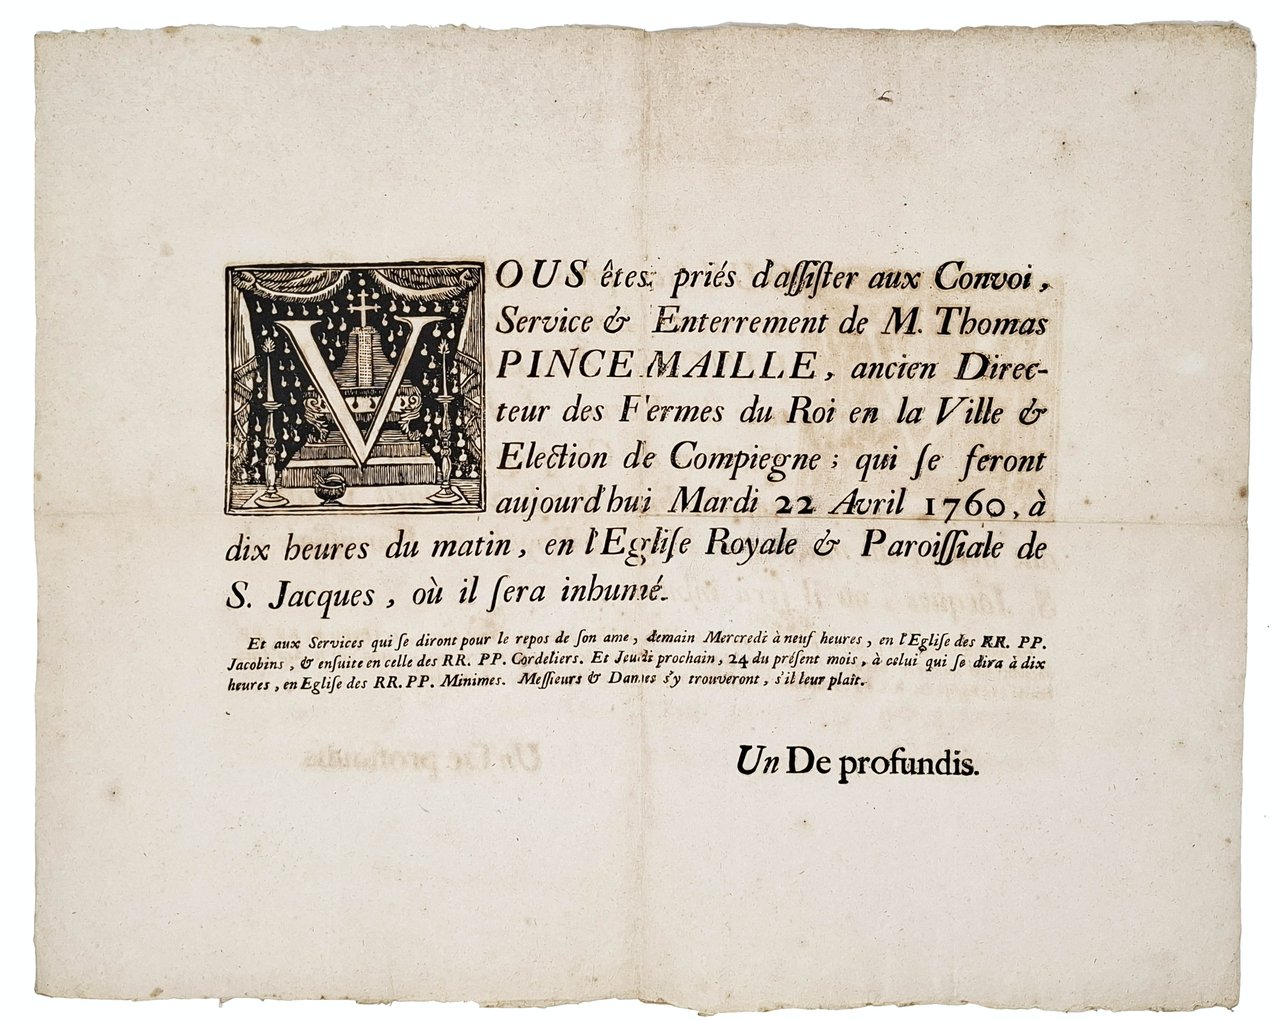 VOUS êtes priés d'aſſiſter aux Convoi,
Service & Enterrement de M. Thomas
PINCEMAILLE, ancien Direc-
teur des Fermes du Roi en la Ville &
Election de Compiegne ; qui ſe feront
aujourd'hui Mardi 22 Avril 1760, à
dix heures du matin, en l'Egliſe Royale & Paroiſſiale de
S. Jacques, où il ſera inhumé.
Et aux Services qui ſe diront pour le repos de ſon ame, demain Mercredi à neuf heures, en l'Egliſe des RR. PP.
Jacobins, & enſuite en celle des RR. PP. Cordeliers. Et Jeudi prochain, 24 du préſent mois, à celui qui ſe dira à dix
heures, en Egliſe des RR. PP. Minimes. Meſſieurs & Dames s'y trouveront, s'il leur plaît.
Un De profundis.